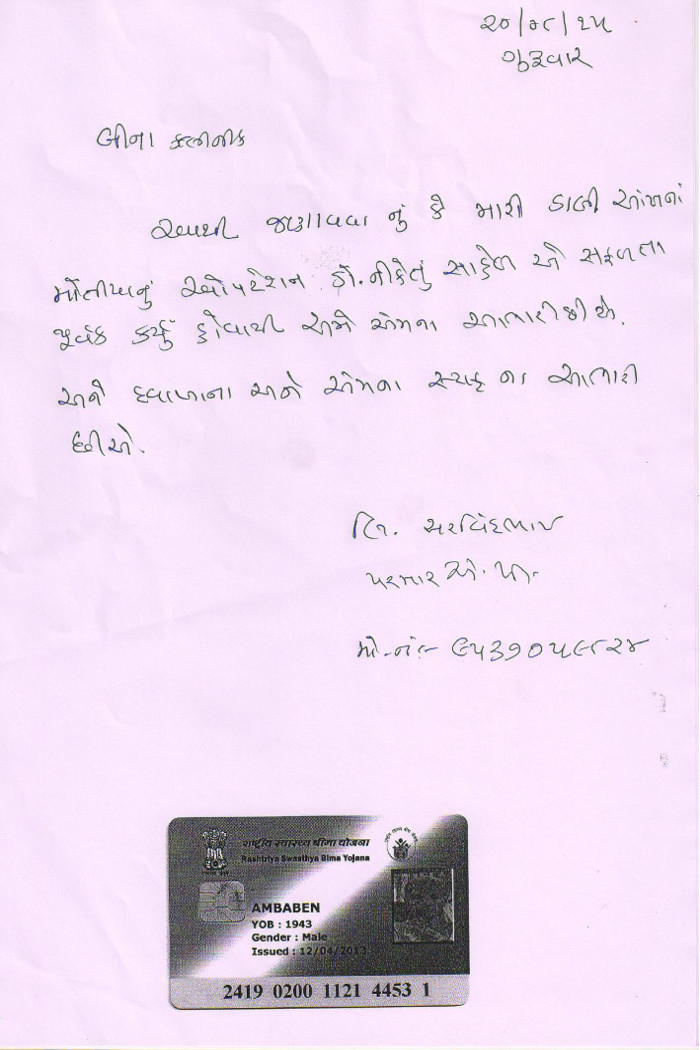 ૨૦/૦૮/૧૫
ગુરૂવાર
બીના કલીનીક
આપથી જણાવવા નું કે મારી ડાબી આંખનાં
મોતીયાનું ઓપરેશન ડૉ. નીકેતું સાહેબ એ સફળતા
પૂર્વક કર્યું હોવાથી અમે એમના આભારી છીએ.
અને દવાખાના અને એમના સ્ટાફ ના આભારી
છીએ.
લિ. અરવિંદભાઇ
પરમાર એ. પી.
મો.નં- ૯૫૩૭૦૫૯૮૨૪
राष्ट्रीय स्वास्थ्य बीमा योजना
Rashtriya Swasthya Bima Yojana
AMBABEN
YOB : 1943
Gender : Male
Issued : 12/04/2013
2419 0200 1121 4453 1